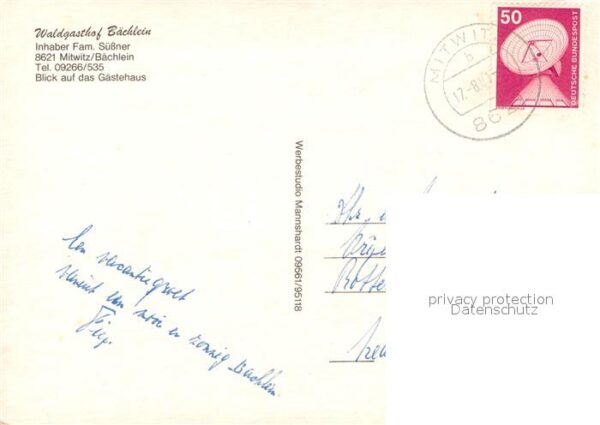 Waldgasthof Bächlein
Inhaber Fam. Süßner
8621 Mitwitz/Bächlein
Tel. 09266/535
Blick auf das Gästehaus
50
DEUTSCHE BUNDESPOST
MITWITZ
17.-8
862
Werbestudio Mannshardt 09561/95118
Een vacantiegroet
vanuit een mooi en zonnig Bächlein
Rotte
privacy protection
Datenschutz